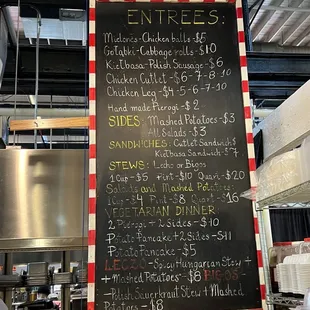 ENTREES:
Mielones-Chicken balls-$5
Gołąbki-Cabbage rolls-$10
Kiełbasa-Polish Sausage-$6
Chicken Cutlet-$6-7-8-10
Chicken Leg-$4-5-6-7-10
Hand made Pierogi-$2
SIDES: Mashed Potatoes-$3
All Salads-$3
SANDWICHES: Cutlet Sandwich-
Kiełbasa Sandwich-$7
STEWS: Lecho or Bigos
1 Cup $5 Pint-$10 Quart-$20
Salads and Mashed Potatoes:
1 Cup $4 Pint-$8 Quart-$16
VEGETARIAN DINNER
2 Pierogi+2 Sides-$10
Potato Pancake+2 Sides-$11
Potato Pancake-$5
LECZO-Spicy Hungarian Stew+
+Mashed Potatoes-$8 BIGOS-
-Polish Sauerkraut Stew+Mashed
Potatoes-$8